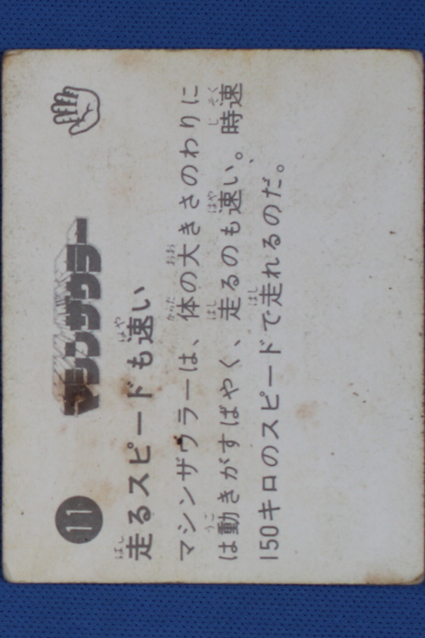 11
マシンザウラー
走るスピードも速い
マシンザウラーは、体の大きさのわりに
は動きがすばやく、走るのも速い。時速
150キロのスピードで走れるのだ。